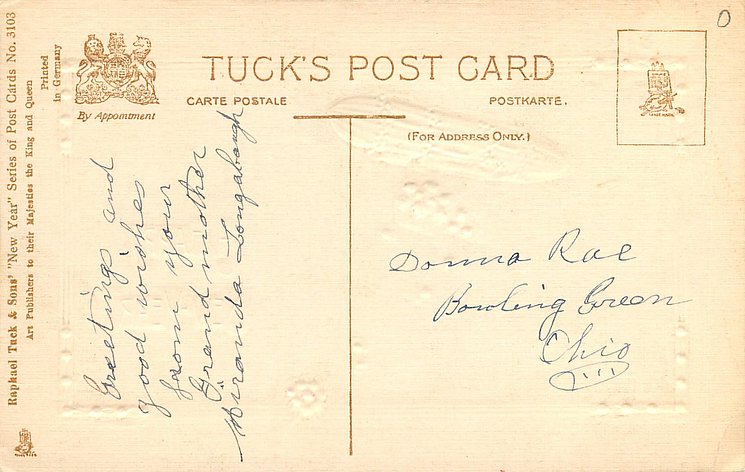 Raphael Tuck & Sons' "New Year" Series of Post Cards No. 3103
Art Publishers to their Majesties the King and Queen
Printed
in Germany
By Appointment
TUCK'S POST CARD
CARTE POSTALE
POSTKARTE.
(FOR ADDRESS ONLY.)
0
Greetings and
good wishes
from your
Grandmother
Miranda Longabaugh
Donna Rae
Bowling Green
Ohio